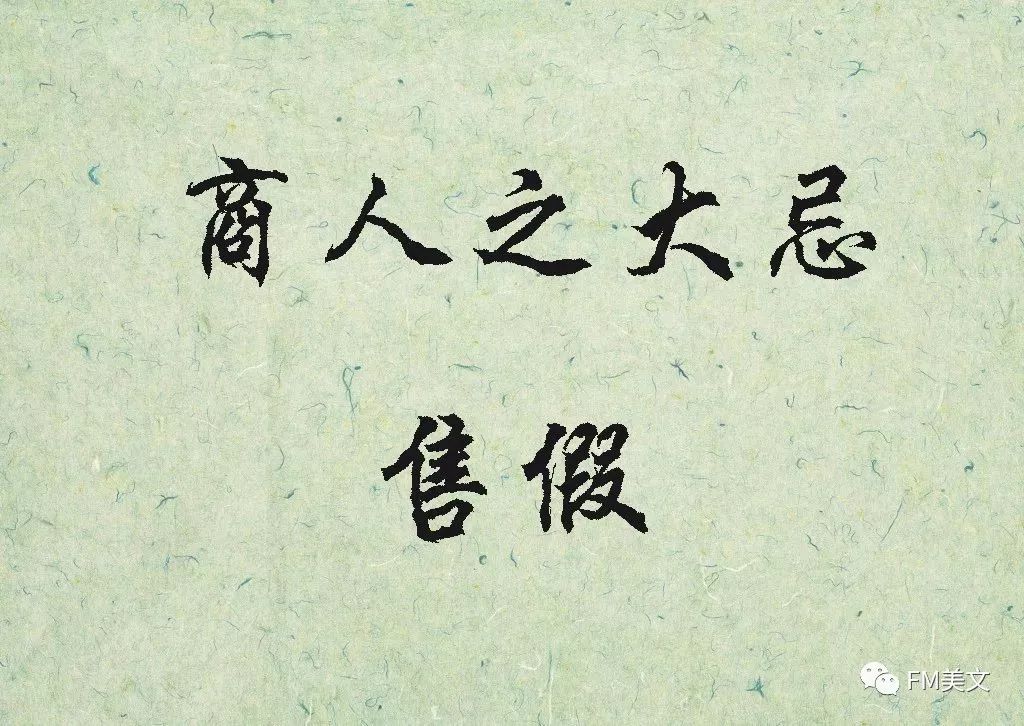 商人之大忌
售假
FM美文